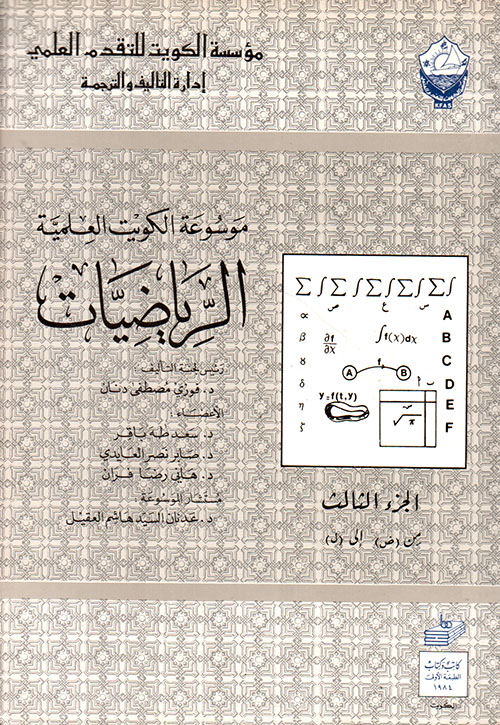 مؤسسة الكويت للتقدم العلمي
إدارة التأليف والترجمة
KFAS
موسوعة الكويت العلمية
الرياضيات
رئيس لجنة التأليف:
د. فوزي مصطفى دنان
الأعضاء:
د. سعد طه باقر
د. صابر نصر العايدي
د. هاني رضا فران
مستشار الموسوعة
د. عدنان السيد هاشم العقيل
∑ ∫ ∑ ∫ ∑ ∫ ∑ ∫ ∑ ∫
ص ع س
∝ A
β ∂f/∂x ∫f(x)dx B
γ C
A f B
δ D
ب أ
y=f(t,y)
η E
√π
ζ F
الجزء الثالث
من (ض) إلى (ل)
كاتب وكتاب
الطبعة الأولى
١٩٨٤
الكويت